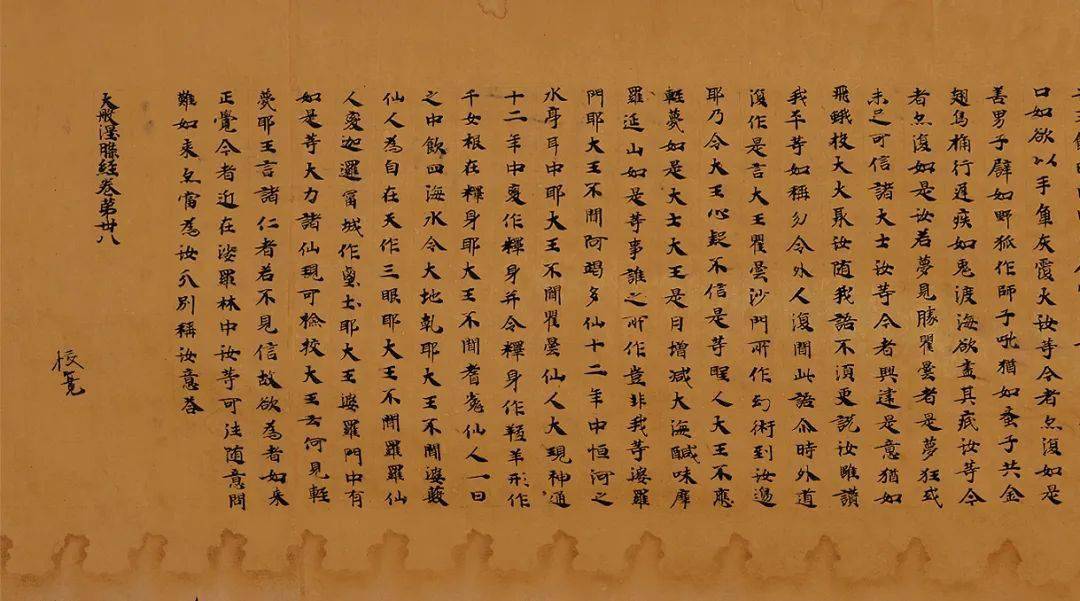 口如欲以手灰覆火汝等今者亦復如是
善男子譬如野狐作師子吼猶如蚉子共金
翅鳥桷行遲疾如兔渡海欲盡其底汝等今
者亦復如是汝若夢見勝瞿曇者是夢狂或
未足可信諸大士汝等今者興建是意猶如
飛蛾投大火聚汝随我語不須更說汝雖讚
我平等如稱勿令外人復聞此語尒時外道
復作是言大王瞿曇沙門所作幻術到汝邊
耶乃令大王心疑不信是等聖人大王不應
輕蔑如是大士大王是日增減大海醎味摩
羅延山如是等事誰之所作豈非我等婆羅
門耶大王不聞阿竭多仙十二年中恒河之
水停耳中耶大王不聞瞿曇仙人大現神通
十二年中變作釋身并令釋身作羖羊形作
千女根在釋身耶大王不聞耆㝹仙人一日
之中飲四海水令大地乾耶大王不聞婆藪
仙人為自在天作三眼耶大王不聞羅羅仙
人變迦邏富城作鹵土耶大王婆羅門中有
如是等大力諸仙現可檢校大王云何見輕
蔑耶王言諸仁者若不見信故欲為者如来
正覺今者近在娑羅林中汝等可往随意問
難如来亦當為汝分別稱汝意答
大般涅槃經卷第卅八
校竟